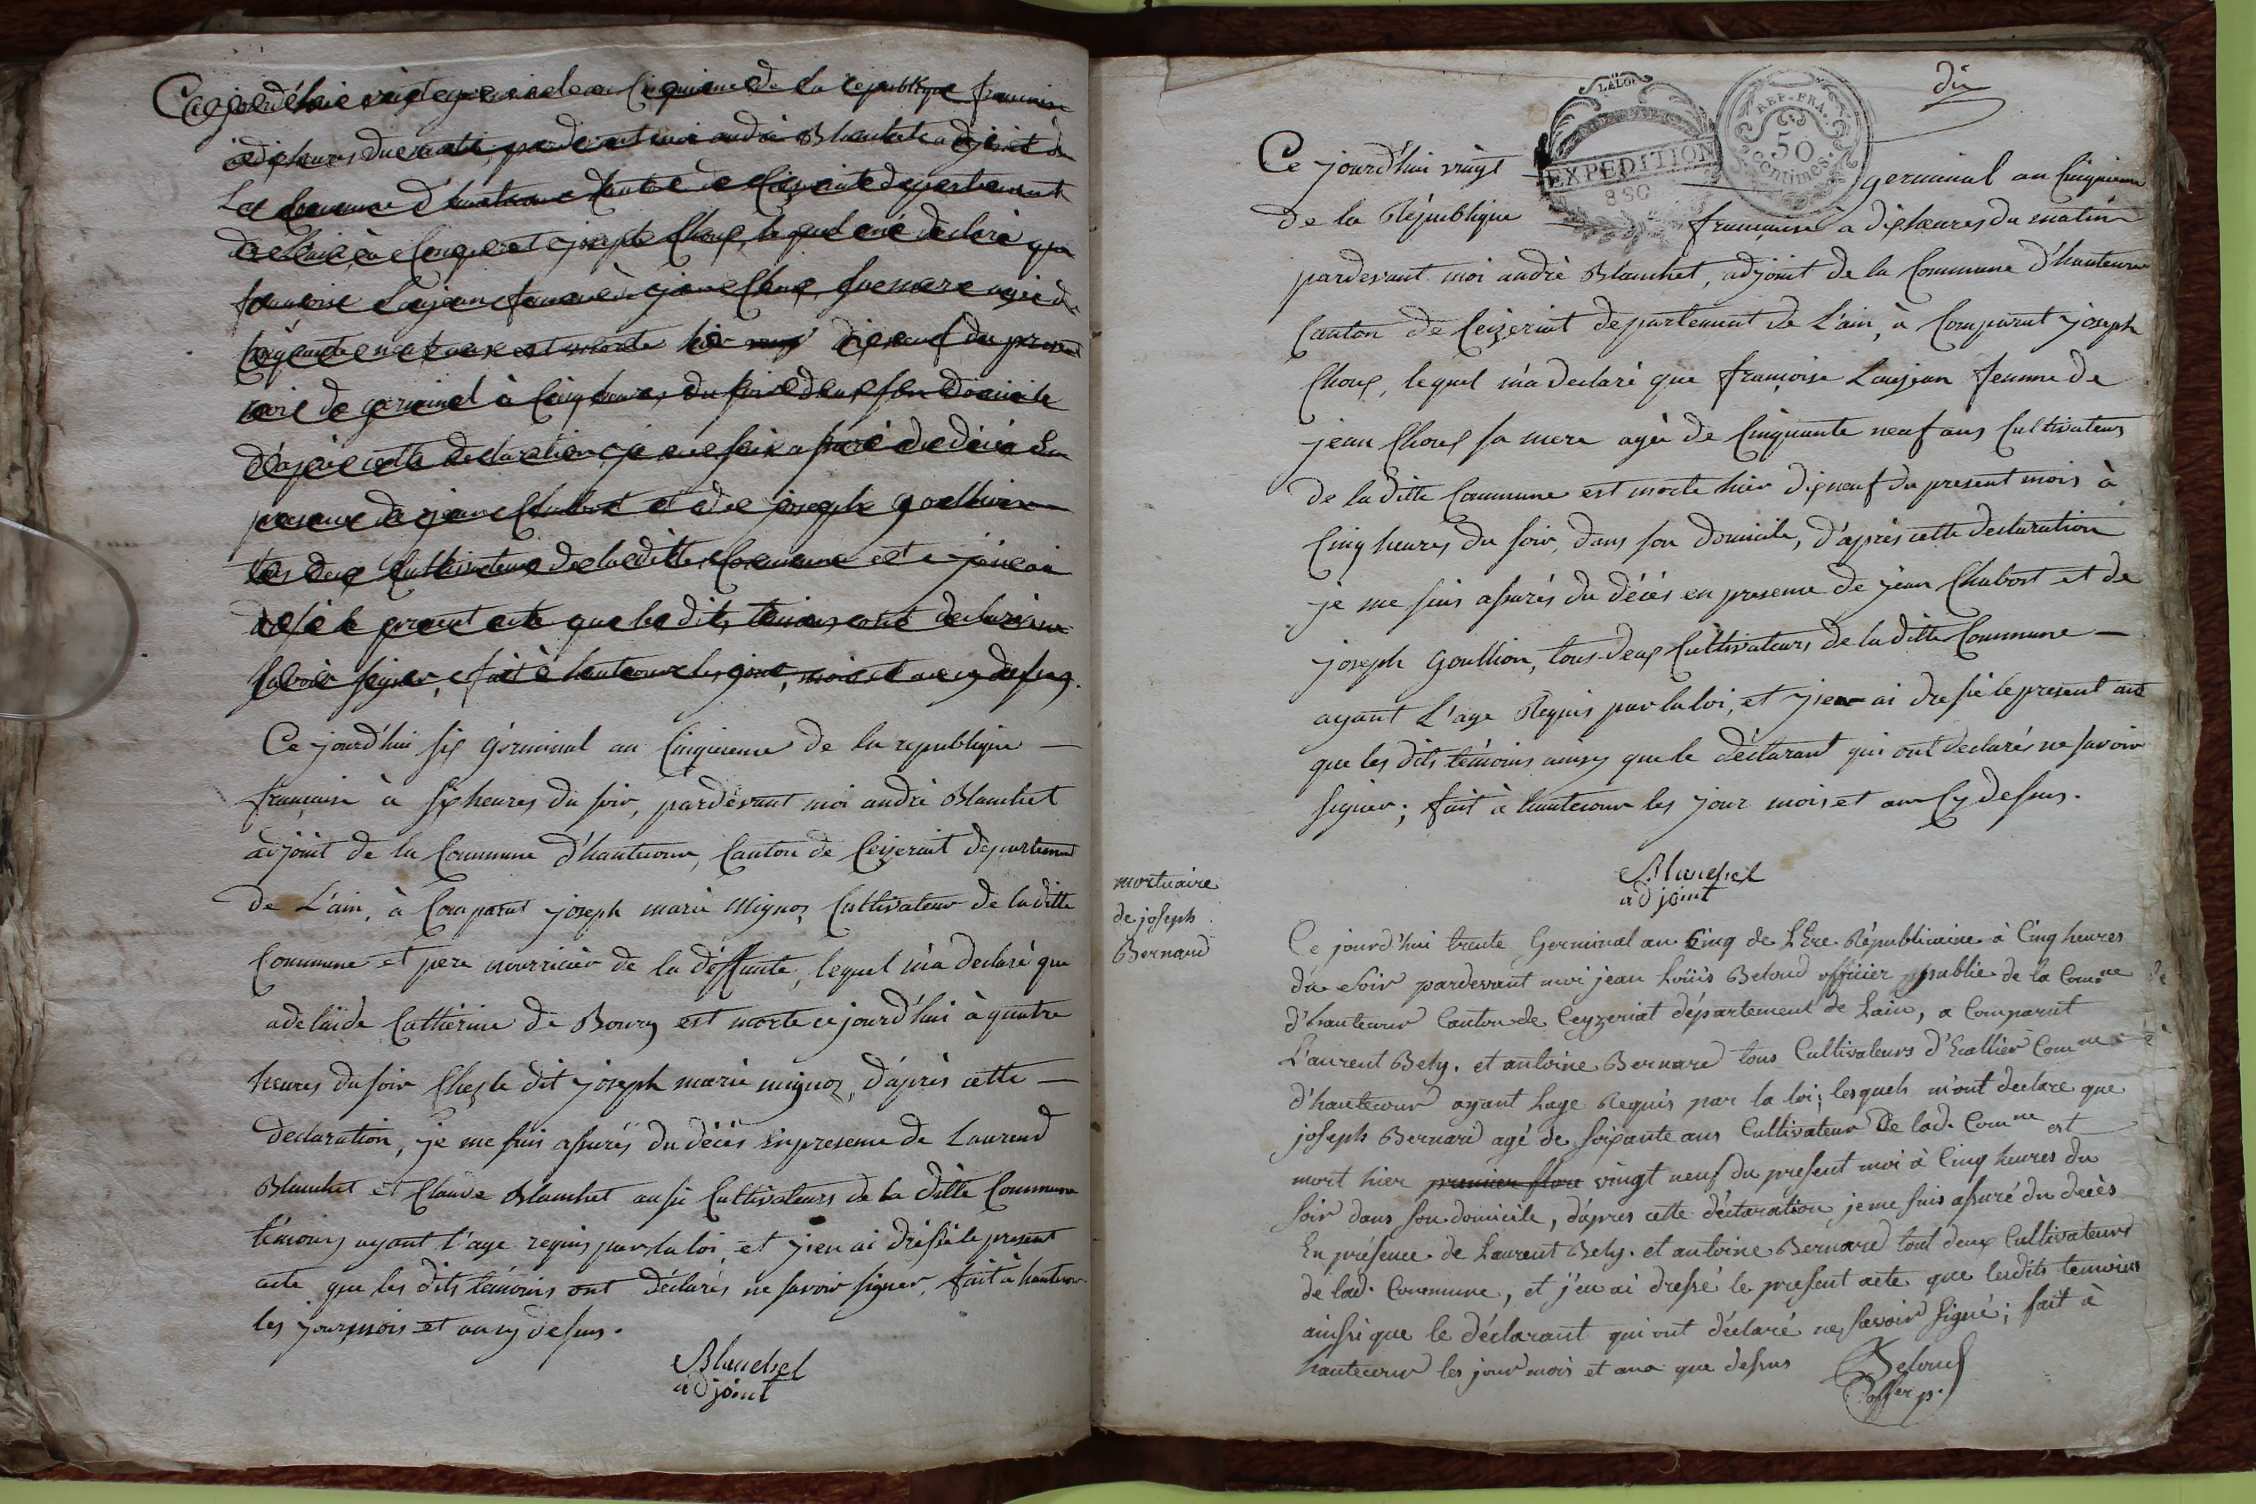 Ce jourd'huie vingt germinal an Cinquieme de la republique francaise
à dix heures du matin, pardevant moi andré Blanchet adjoint de
La Commune d'hautecour Canton de Ceizeriat departement
de L'ain, à Comparut joseph Choux, lequel m'a declaré que
francoise Laujean femme à jean Choux, sa mere agée de
Cinquante neuf ans est morte hier dixneuf du present
mois de germinal à Cinq heures du soir dans son domicile
d'après cette declaration, je me suis assuré du décès En
presence de jean Chabost et de joseph goullion
tous deux Cultivateurs de la ditte Commune et j'en ai
dressé le present acte que les dits témoins ont declaré ne
savoir signer, fait à hautecour les jour, mois et an cy dessus.
Ce jourd'hui six Gérminal an Cinquieme de la republique —
française à six heures du soir, pardevant moi andré Blanchet
adjoint de la Commune d'hautecour, Canton de Ceizeriat departement
de L'ain, à Comparut joseph marie Mignoz Cultivateur de la ditte
Commune et pere nourricier de la déffunte, lequel m'a declaré que
adelaïde Catherine de Bourg est morte ce jourd'hui à quatre
heures du soir Chez le dit joseph marie mignoz, d'après cette —
declaration, je me suis assurés du décès en presence de Laurend
Blanchet et Claude Blanchet aussi Cultivateurs de la ditte Commune
témoins ayant l'age requis par la loi et j'en ai dressé le present
acte que les dits témoins ont déclarés ne savoir signer, fait à hautecour
les jour, mois et an cy dessus.
Blanchet
adjoint
dix
LA LOI
EXPEDITION
REP. FRA.
50
centimes.
Ce jourd'hui vingt germinal an Cinquieme
de la République française à dix heures du matin
pardevant moi andré Blanchet, adjoint de la Commune d'hautecour
Canton de Ceizeriat departement de L'ain, à Comparut joseph
Choux, lequel m'a declaré que françoise Laujean femme de
jean Choux sa mere agée de Cinquante neuf ans Cultivateurs
de la ditte Commune est morte hier dixneuf du present mois à
Cinq heures du soir, dans son domicile, d'après cette declaration
je me suis assurés du décès en presence de jean Chabost et de
joseph Goullion, tous deux Cultivateurs de la ditte Commune —
ayant L'age Requis par la loi, et j'en ai dressé le present acte
que les dits témoins ainsy que le déclarant qui ont declarés ne savoir
signer; fait à hautecour les jour mois et an Cy dessus.
Blanchet
adjoint
mortuaire
de joseph
Bernard
Ce jourd'hui trente Germinal an Cinq de L'Ere Républicaine à Cinq heures
du soir pardevant moi jean Loüis Beloud officier publie de la Comne
d'hautecour Canton de Ceyzeriat département de Lain, a Comparut
Laurent Bely. et antoine Bernard tous Cultivateurs d' Comne
d'hautecour ayant Lage Requis par la loi; lesquels m'ont declare que
joseph Bernard agé de soixante ans Cultivateur De lad. Comne est
mort hier premier flore vingt neuf du present moi à Cinq heures du
soir dans son domicile, d'apres cette déclaration je me suis assuré du decès
En présence de Laurent Bely. et antoine Bernard tout deux Cultivateurs
de lad. Commune, et j'en ai dressé le present acte que lesdits temoins
ainsi que le déclarant qui ont déclaré ne savoir signé; fait à
hautecour les jour mois et ana que dessus Beloud
offer p.